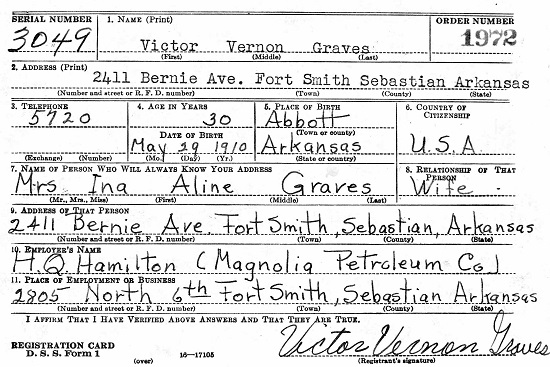 SERIAL NUMBER 1. NAME (Print) ORDER NUMBER
3049 Victor Vernon Graves 1972
(First) (Middle) (Last)
2. ADDRESS (Print)
2411 Bernie Ave. Fort Smith Sebastian Arkansas
(Number and street or R. F. D. number) (Town) (County) (State)
3. TELEPHONE 4. AGE IN YEARS 5. PLACE OF BIRTH 6. COUNTRY OF CITIZENSHIP
5720 30 Abbott
(Town or county)
DATE OF BIRTH U.S.A.
May 29 1910 Arkansas
(Exchange) (Number) (Mo.) (Day) (Yr.) (State or country)
7. NAME OF PERSON WHO WILL ALWAYS KNOW YOUR ADDRESS 8. RELATIONSHIP OF THAT PERSON
Mrs Ina Aline Graves Wife.
(Mr., Mrs., Miss) (First) (Middle) (Last)
9. ADDRESS OF THAT PERSON
2411 Bernie Ave. Fort Smith, Sebastian, Arkansas
(Number and street or R. F. D. number) (Town) (County) (State)
10. EMPLOYER'S NAME
H.Q. Hamilton (Magnolia Petroleum Co.)
11. PLACE OF EMPLOYMENT OR BUSINESS
2805 North 6th Fort Smith, Sebastian Arkansas
(Number and street or R. F. D. number) (Town) (County) (State)
I AFFIRM THAT I HAVE VERIFIED ABOVE ANSWERS AND THAT THEY ARE TRUE.
REGISTRATION CARD Victor Vernon Graves
D. S. S. Form 1 (over) 16—17105 (Registrant's signature)